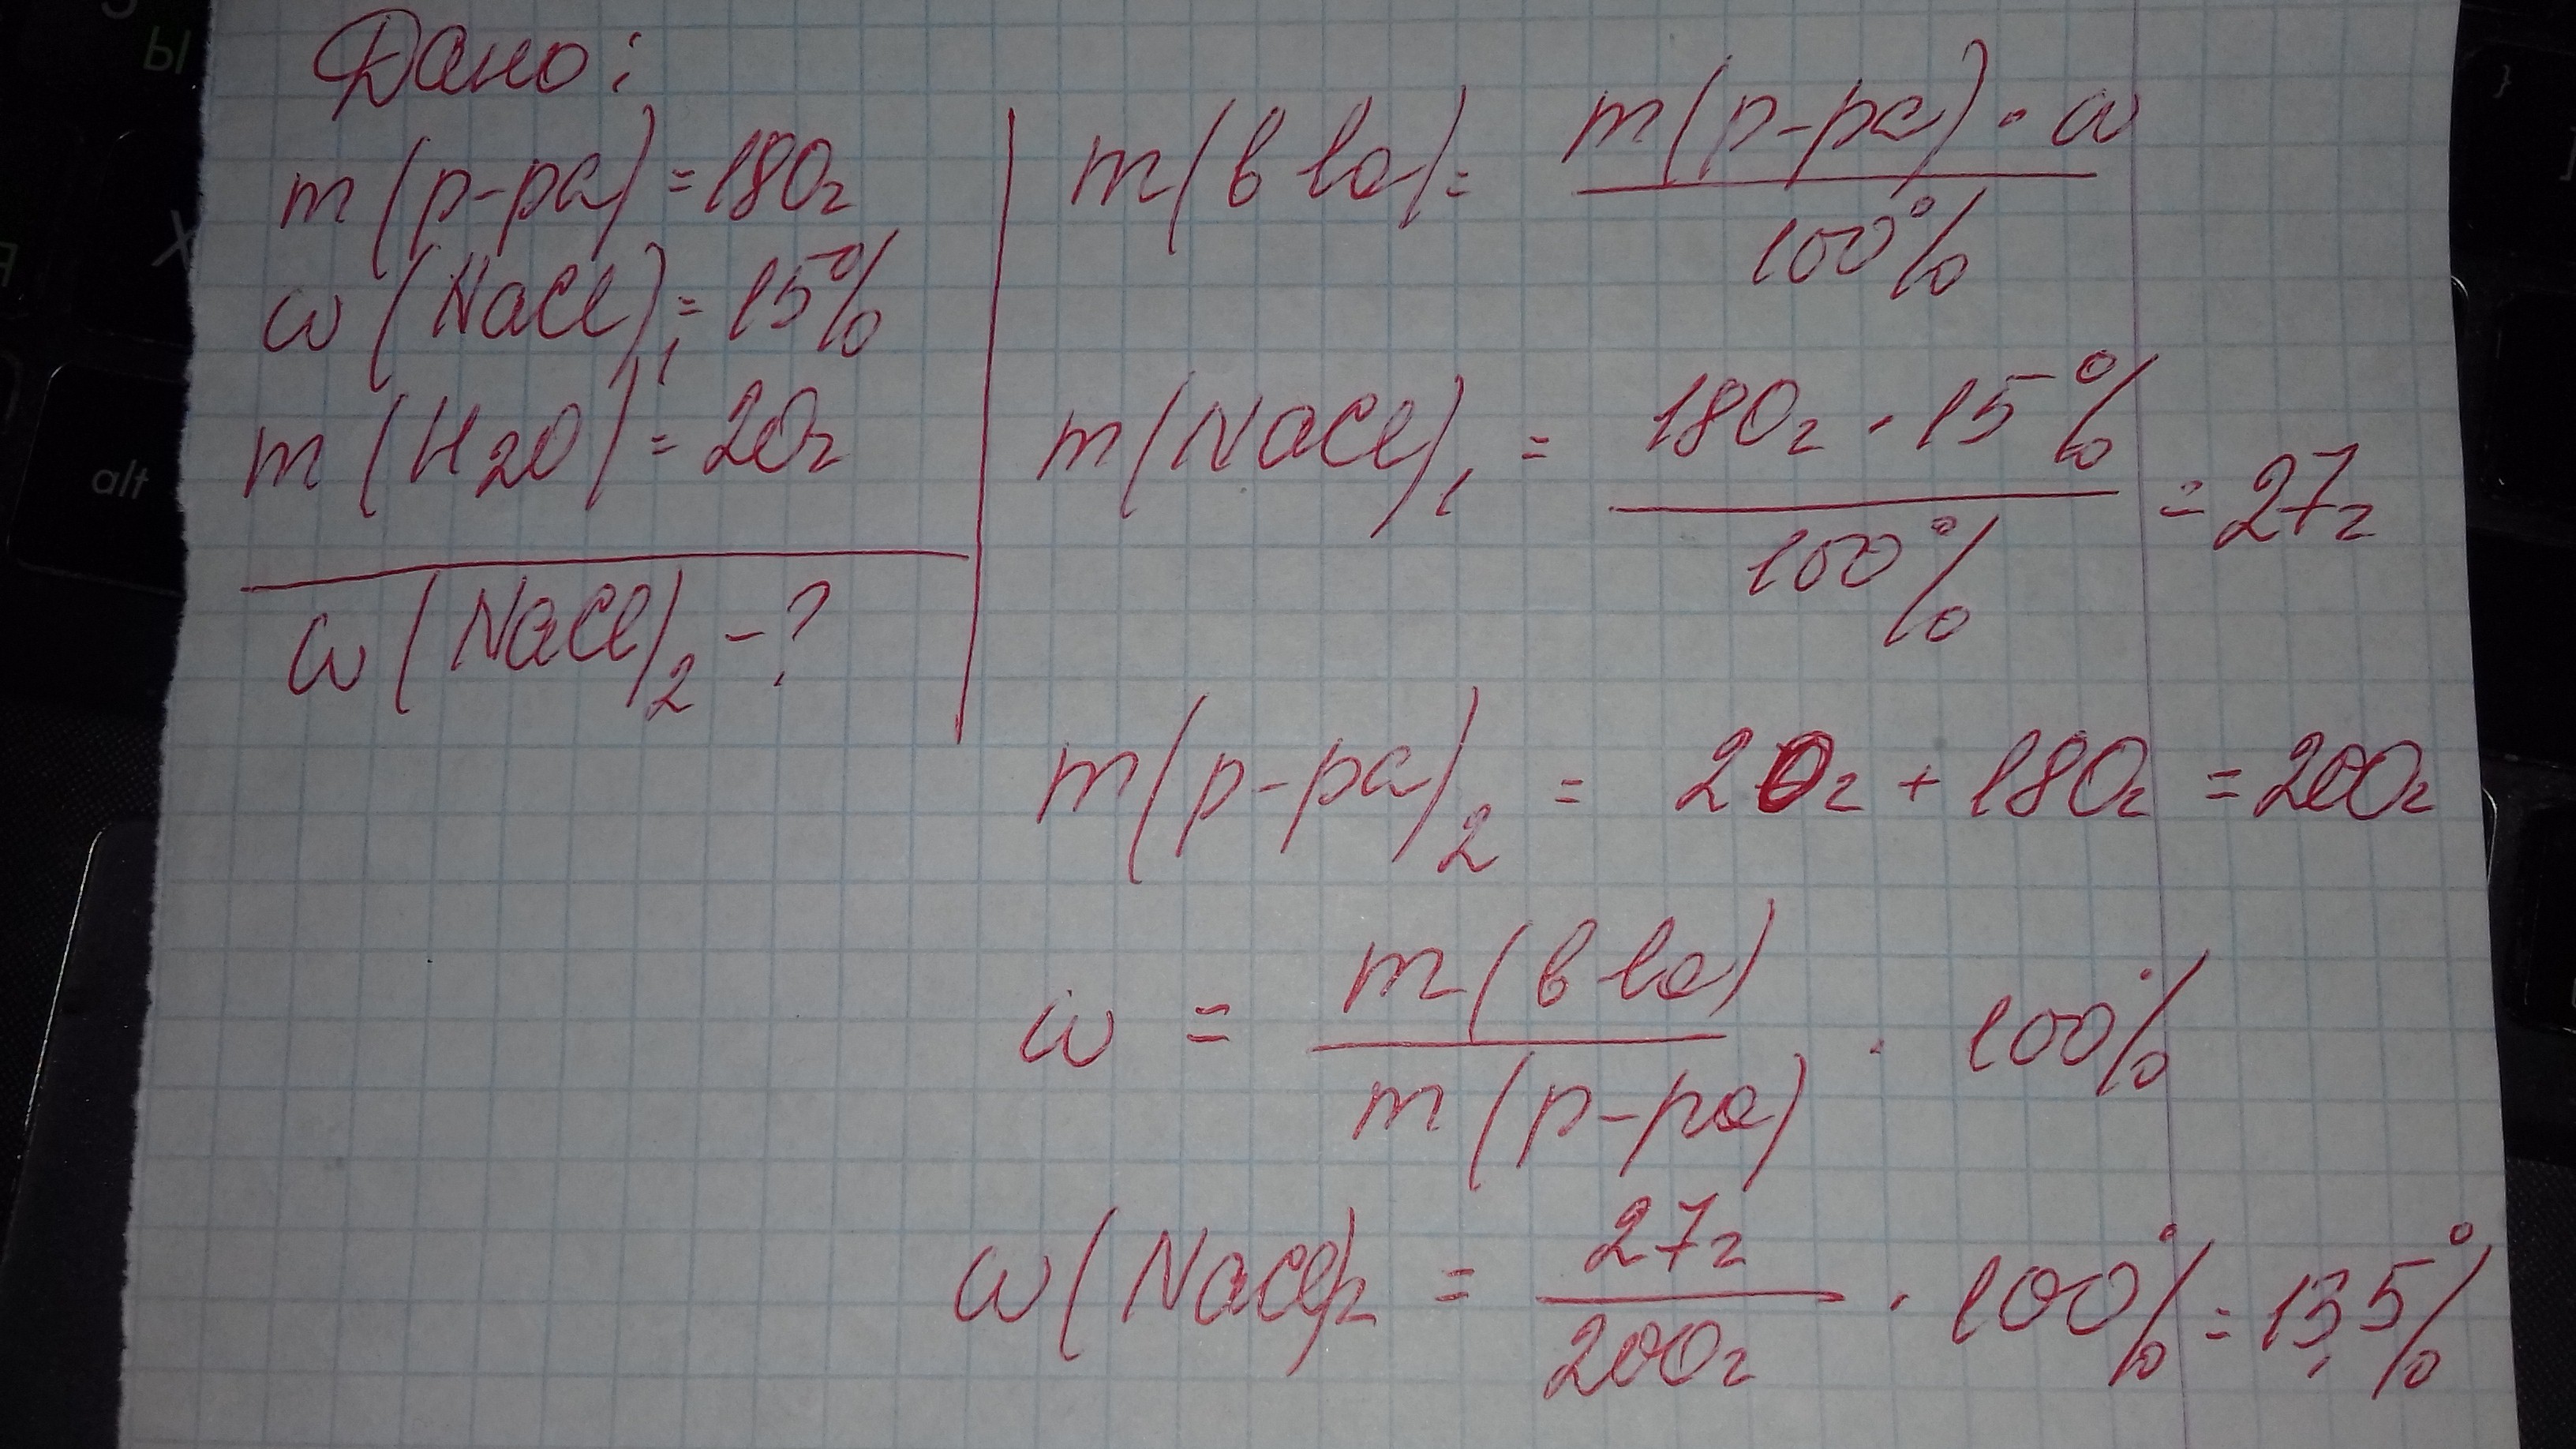 Дано:
m(р-ра) = 180г
ω(NaCl)₁ = 15%
m(H₂O) = 20г
ω(NaCl)₂ - ?
m(в-ва) = m(р-ра) · ω / 100%
m(NaCl)₁ = 180г · 15% / 100% = 27г
m(р-ра)₂ = 20г + 180г = 200г
ω = m(в-ва) / m(р-ра) · 100%
ω(NaCl)₂ = 27г / 200г · 100% = 13,5%
Ы
Х
Я
alt
}
]